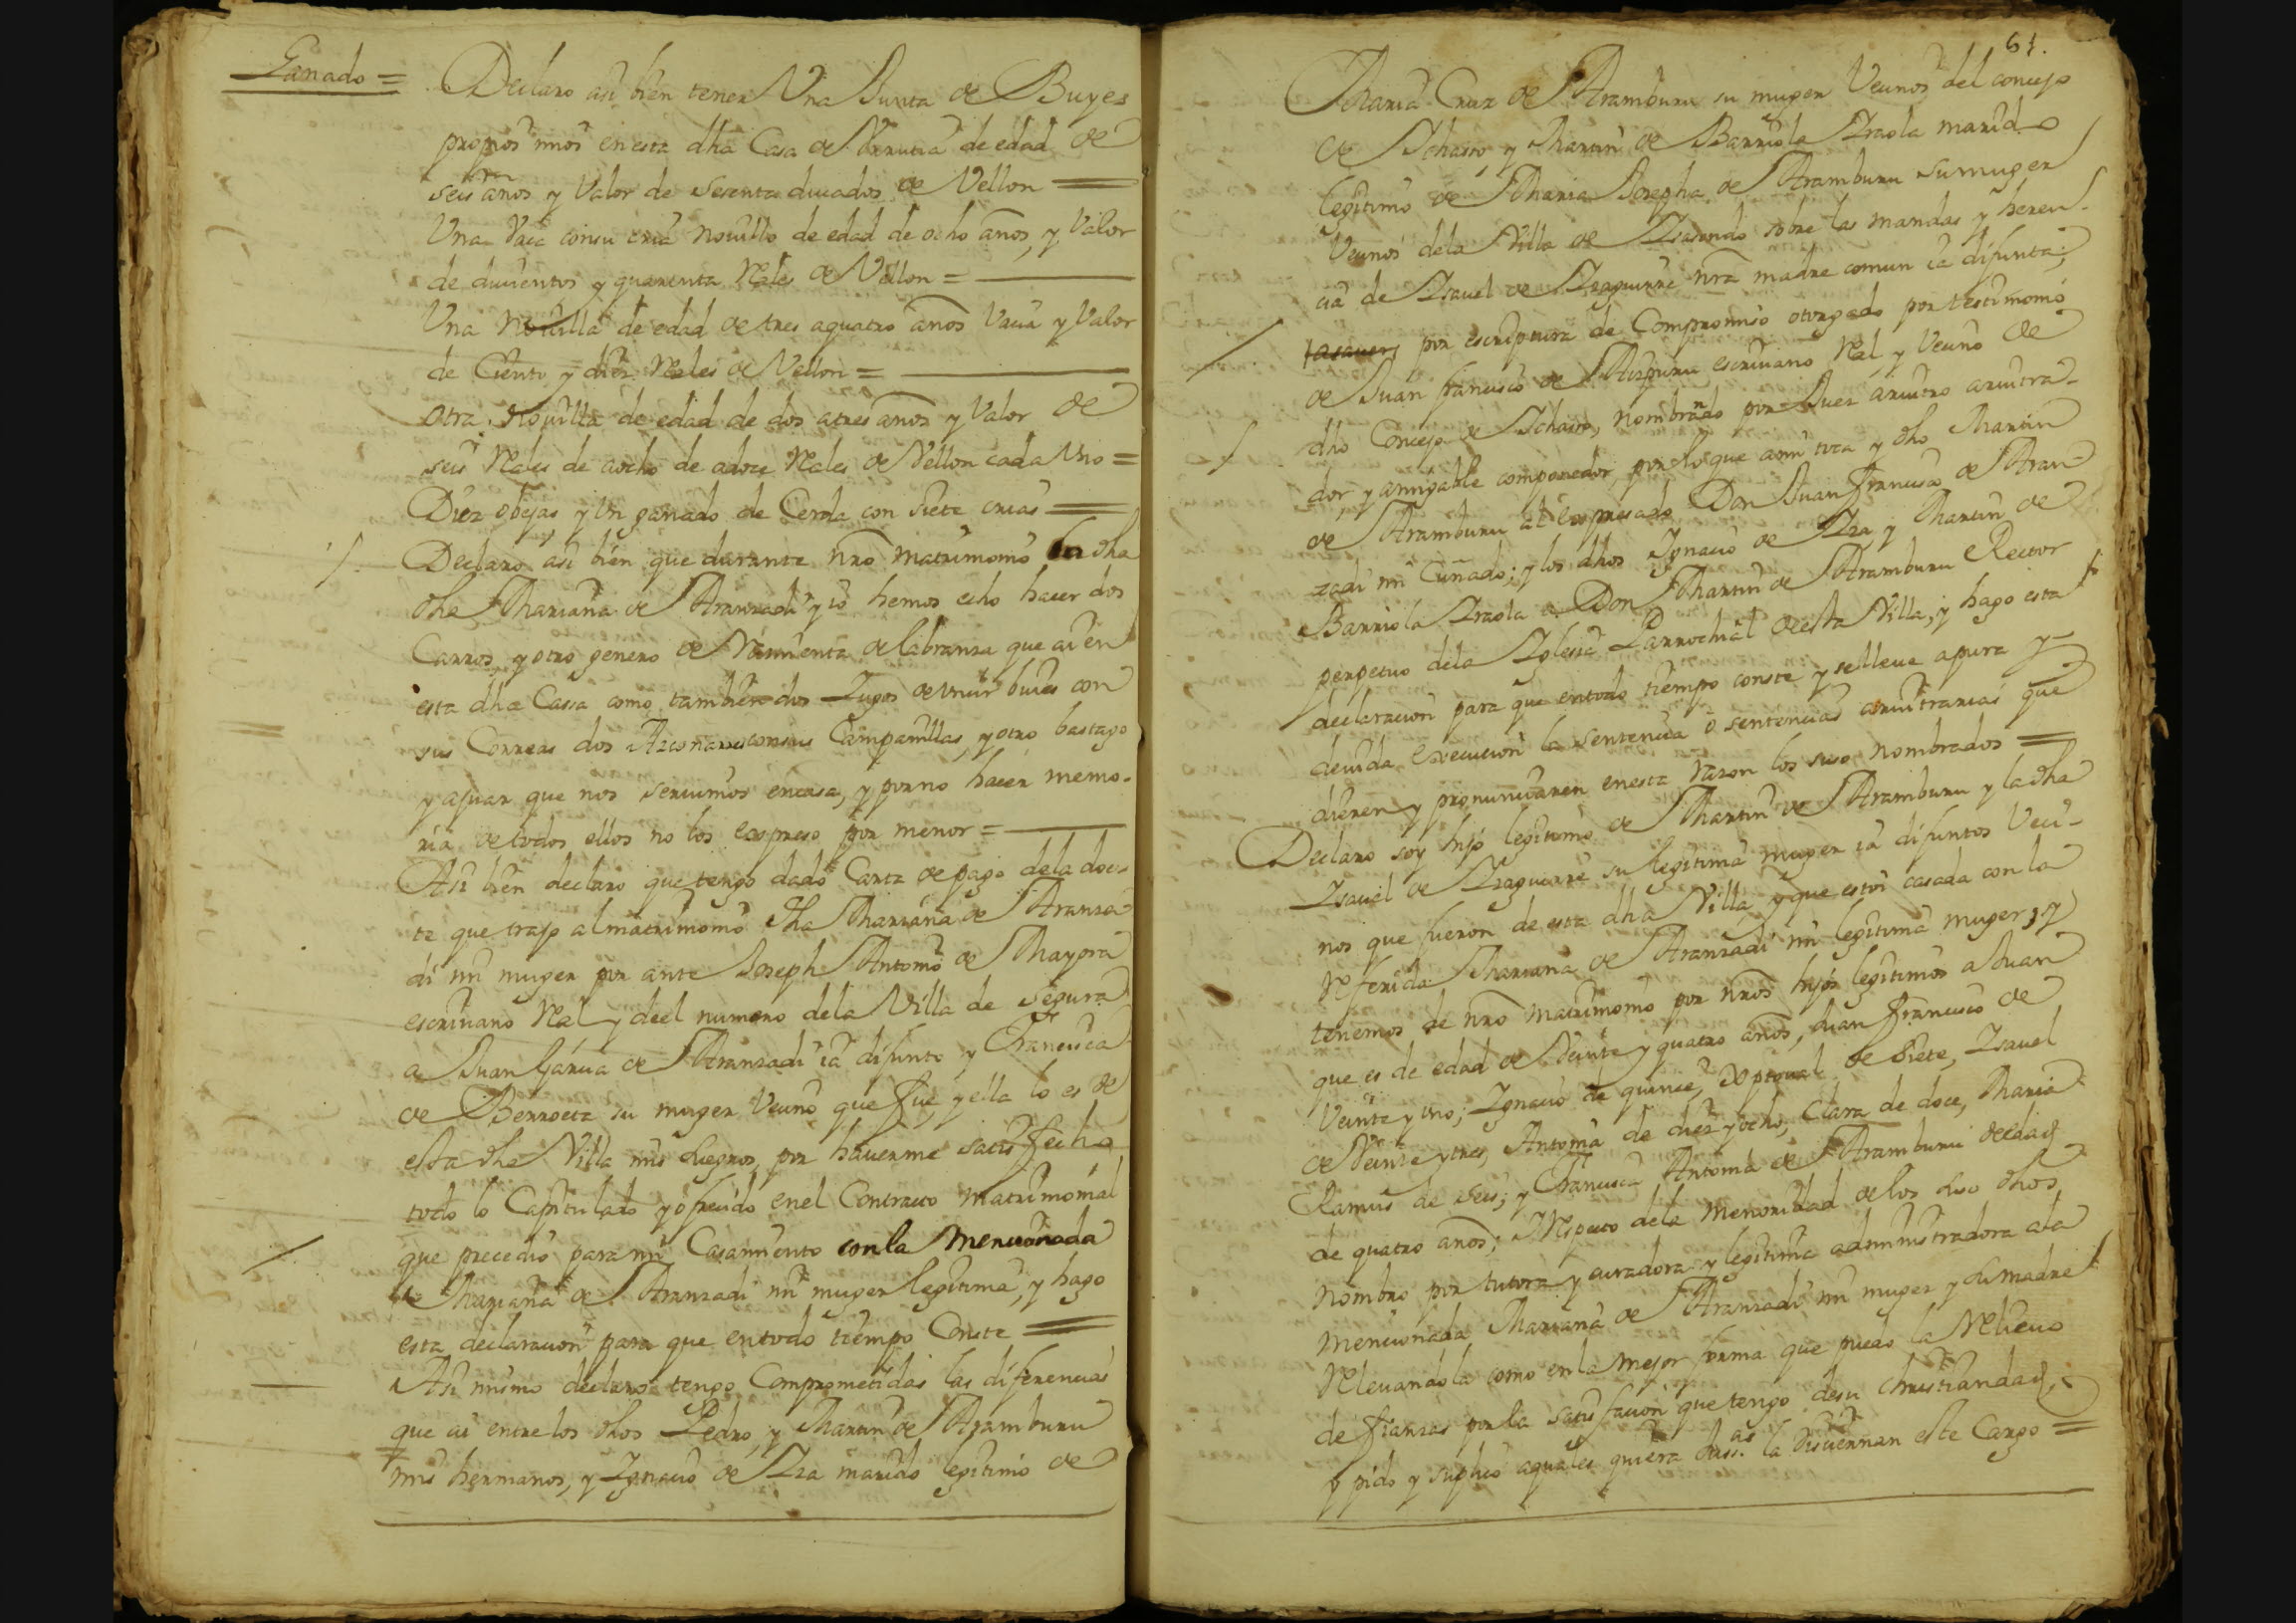 Ganado =
Declaro asi bien tener Una Junta de Bueyes
propios mios en esta dha Casa de Urrutia de edad de
seis años y Valor de Sesenta ducados de Vellon =
Una Vaca con su cria novillo de edad de ocho años, y Valor
de ducientos y quarenta Rales de Vellon =
Una Novilla de edad de tres a quatro años Vacia y Valor
de Ciento y diez Rales de Vellon =
Otra Novilla de edad de dos a tres años y Valor de
seis Rales de a ocho de a doze Rales de Vellon cada Uno =
Diez obejas y Un ganado de Cerda con siete crias =
Declaro asi bien que durante nro matrimonio la dha
dha Mariana de Aranzadi y io hemos echo hacer dos
Carros, y otro genero de Ramienta de labranza que ai en
esta dha Cassa como tambien dos Iugos de Unir buies con
sus Correas dos Azconares con sus Campanillas, y otro bastago
y ajuar que nos servimos en casa, y por no hacer memo-
ria de todos ellos no los expreso por menor =
Asi bien declaro que tengo dado Carta de pago de la doc-
te que trajo al matrimonio dha Mariana de Aranza
di mi muger por ante Joseph Antonio de Mayora
escrivano Ral y del numero de la Villa de Segura
a Juan Garcia de Aranzadi ia difunto y Francisca
de Berroeta su muger Vecino que fue, y ella lo es de
esta dha Villa mis suegros, por haverme satisfecho
todo lo Capitulado y ofrecido en el Contracto matrimonial
que precedio para mi Casamiento con la mencionada
Mariana de Aranzadi mi muger legitima, y hago
esta declaracion para que en todo tiempo Conste =
Asi mismo declaro tengo Comprometidas las diferencias
que ai entre los dhos Pedro, y Martin de Aramburu
mis hermanos, y Ignacio de Iza marido legitimo de
61.
Maria Cruz de Aramburu su muger Vecinos del concejo
de Ichaso, y Martin de Barriola Izaola marido
legitimo de Maria Josepha de Aramburu su muger
Vecinos de la Villa de Izasondo sobre las mandas y heren-
cia de Isavel de Izaguirre nra madre comun ia difunta,
por escriptura de Compromiso otorgado por testimonio
de Juan francisco de Aizpuru escrivano Ral y Vecino de
dho Concejo de Ichaso, nombrando por Juez arvitro arvitra-
dor y amigable componedor, por lo que ami toca y dho Martin
de Aramburu al expresado Don Juan Francisco de Aran-
zadi mi Cuñado; y los dhos Ignacio de Iza y Martin de
Barriola Izaola a Don Martin de Aramburu Rector
perpetuo de la Iglesia Parrochial de esta Villa, y hago esta
declaracion para que en todo tiempo conste y se lleve a pura y
devida execucion la sentencia o sentencias arvitrarias que
dieren y pronunciaren en esta razon los suso nombrados =
Declaro soy hijo legitimo de Martin de Aramburu y la dha
Isavel de Izaguirre su legitima muger ia difuntos Veci-
nos que fueron de esta dha Villa, y que estoi casado con la
referida Mariana de Aranzadi mi legitima muger; y
tenemos de nro matrimonio por nros hijos legitimos a Juan
que es de edad de Veinte y quatro años, Juan francisco de
Veinte y uno; Ignacio de quince, de siete, Isavel
de Veinte y tres, Antonia de diez y ocho; Clara de doce, Maria
Ramus de seis; y Francisca Antonia de Aramburu de edad
de quatro años; Respecto de la menoridad de los suso dhos
nombro por tutora y curadora y legitima administradora a la
mencionada Mariana de Aranzadi mi muger y su madre
Relevandola como en la mejor forma que puedo la Relievo
de fianzas por la satisfacion que tengo de su christiandad,
y pido y suplico a quales quiera Juss.as la disciernan este Cargo =